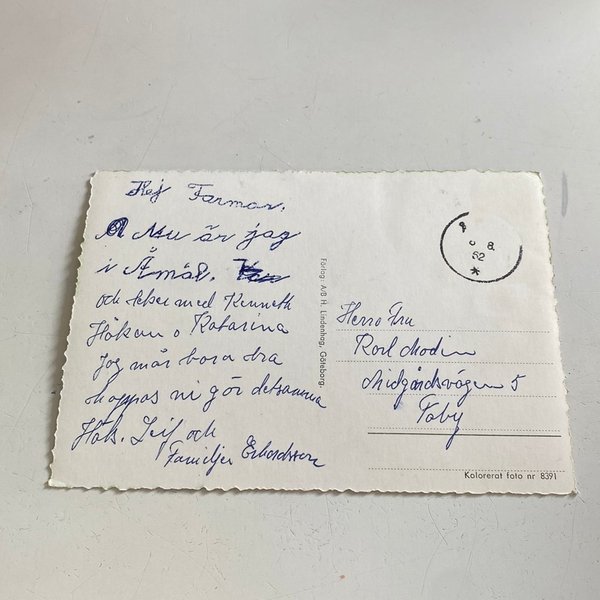 Hej Farmor.
Nu är jag
i Åmål.
och leker med Kenneth
Håkan o Katarina
Jag mår bara bra
hoppas ni gör detsamma
Häls. Leif och
Familjen
Förlag: A/B H. Lindenhag, Göteborg.
8
62
*
Herr o Fru
Modin
Midgårdsvägen 5
Täby
Kolorerat foto nr 8391